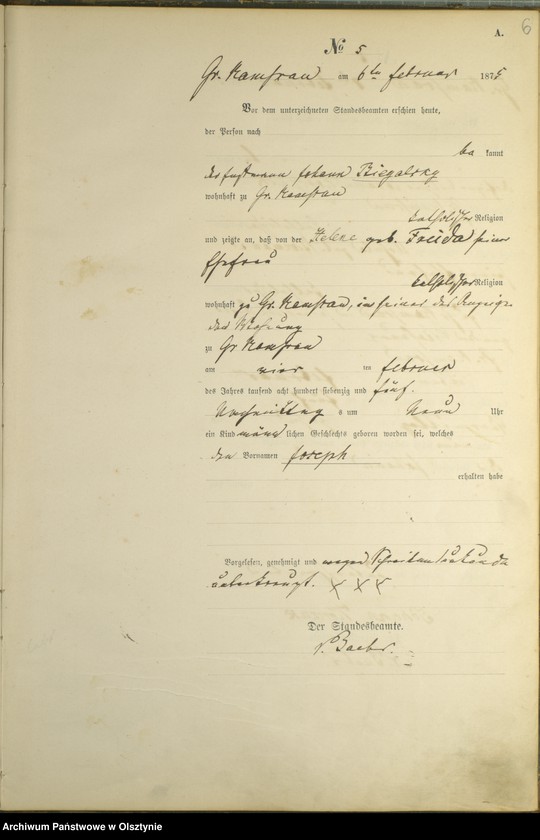 6
A.
№ 5
Gr. Ramsau am 6ten Februar 1875
Vor dem unterzeichneten Standesbeamten erschien heute,
der Person nach
be kannt
der Johann
wohnhaft zu Gr. Ramsau
katholischer Religion
und zeigte an, daß von der Helene geb. seiner
Ehefrau
katholischer Religion
wohnhaft zu Gr. Ramsau, in seiner des Anzeigen
den Wohnung
zu Gr Ramsau
am vier ten Februar
des Jahres tausend acht hundert siebenzig und fünf
Nachmittag s um Neun Uhr
ein Kind männ lichen Geschlechts geboren worden sei, welches
den Vornamen Joseph
erhalten habe
Vorgelesen, genehmigt und wegen
unterkreuzt. XXX
Der Standesbeamte.
Archiwum Państwowe w Olsztynie